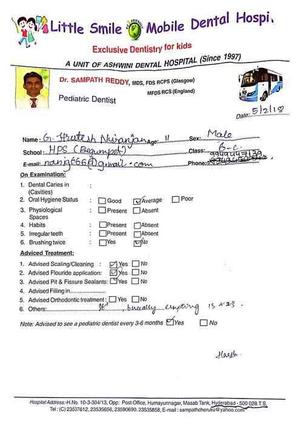 Little Smile Mobile Dental Hospi
Exclusive Dentistry for kids
A UNIT OF ASHWINI DENTAL HOSPITAL (Since 1997)
Dr. SAMPATH REDDY, MDS, FDS RCPS (Glasgow)
MFDS RCS (England)
Pediatric Dentist
Date: 5/2/18
Name: G. Hrutesh Niranjan Age: 11 Sex: Male
School: HPS (Begumpet) Class: 6-C
E-mail: Phone:
On Examination:
1. Dental Caries in :
(Cavities)
2. Oral Hygiene Status : Good Average Poor
3. Physiological : Present Absent
Spaces
4. Habits : Present Absent
5. Irregular teeth : Present Absent
6. Brushing twice : Yes No
Adviced Treatment:
1. Advised Scaling/Cleaning : Yes No
2. Advised Flouride application: Yes No
3. Advised Pit & Fissure Sealants: Yes No
4. Advised Filling in
5. Advised Orthodontic treatment: Yes No
6. Others: bucally erupting 13 + 23.
Note: Advised to see a pediatric dentist every 3-6 months Yes No
Harsh
Hospital Address: H.No. 10-3-304/13, Opp: Post Office, Humayunnagar, Masab Tank, Hyderabad - 500 028 T.S.
Tel: (C) 23537612, 23535656, 23590690, 23535858, E-mail: